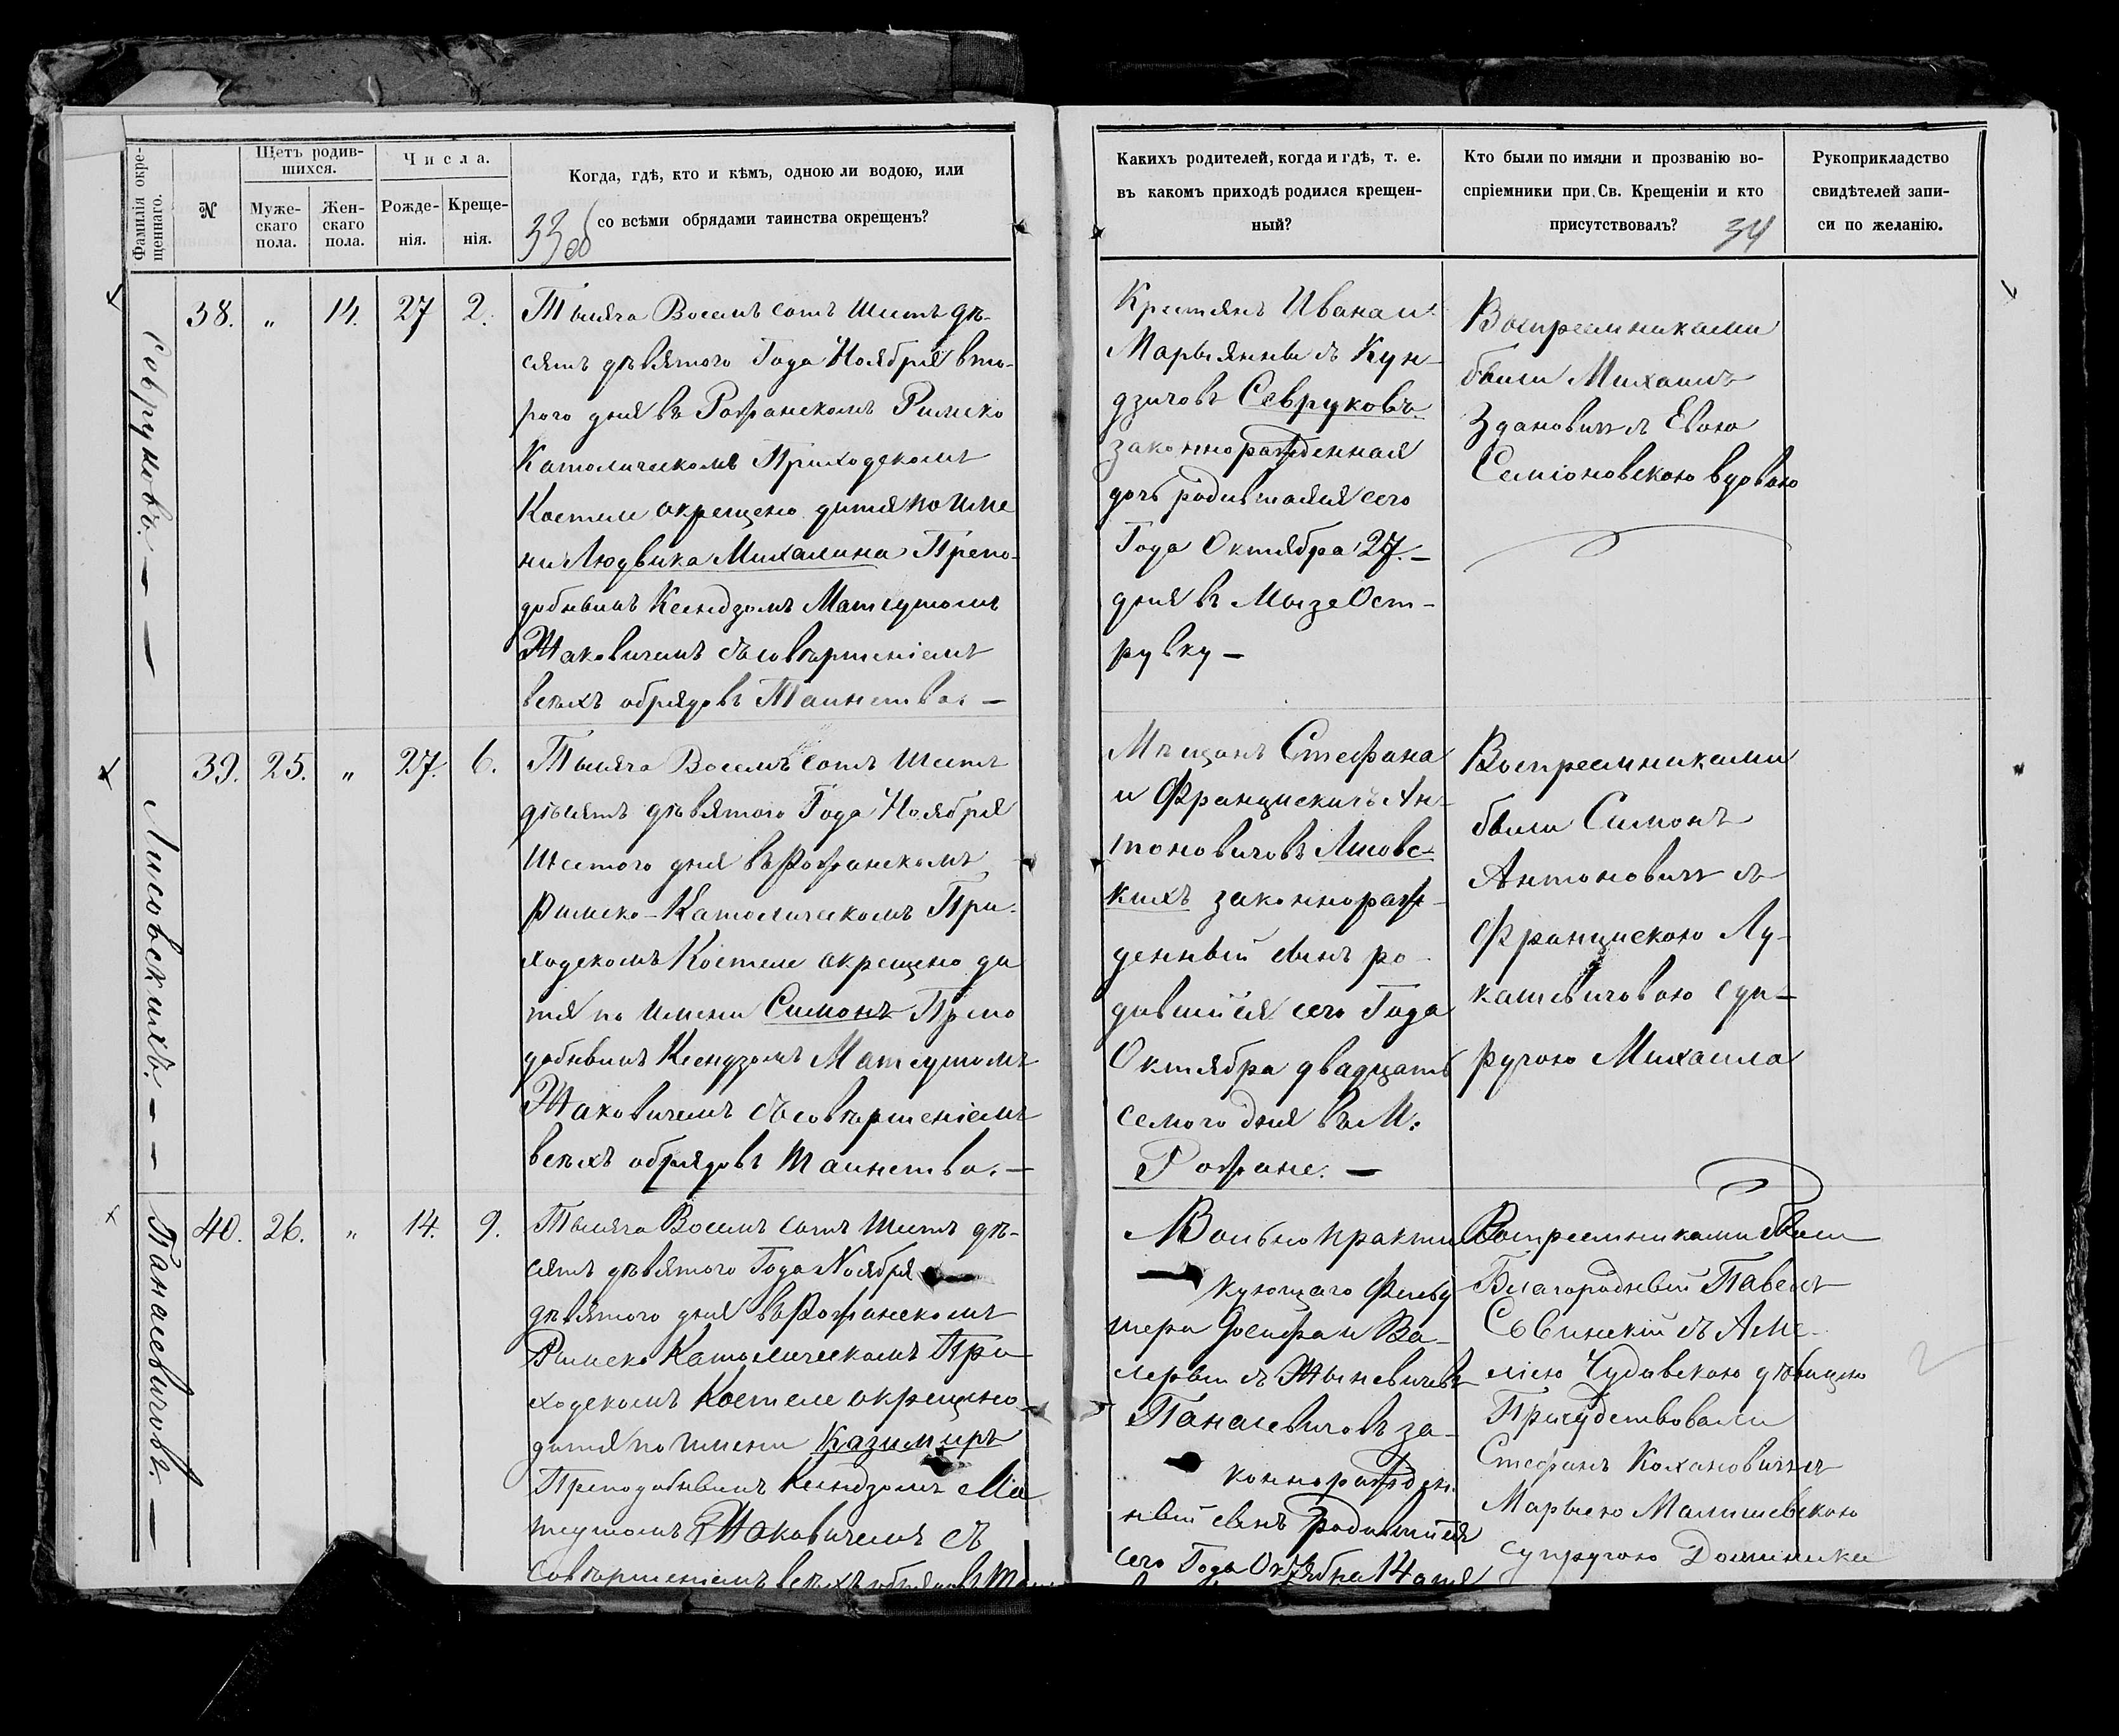 Фамилія окре-
щеннаго.
N
Щетъ родив-
шихся.
Муже-
скаго
пола.
Жен-
скаго
пола.
Числа.
Рожде-
нія.
Креще-
нія.
Когда, гдѣ, кто и кѣмъ, одною ли водою, или
со всѣми обрядами таинства окрещенъ?
33об
Севруковъ. — —
38.
„
14.
27
2.
Тысяча Восемъ сотъ Шестъ дѣ-
сятъ дѣвятого Года Ноября вто-
рого дня въ Рожанскомъ Римско
Католическомъ Приходскомъ
Костеле окрещено дитя по име
ни Людвика Михалина Препо-
добнымъ Ксендзомъ Матеушомъ
Жаковичемъ съ совѣршеніемъ
всѣхъ обрядовъ Таинства. —
Лисовскихъ. — —
39.
25.
„
27.
6.
Тысяча Восемъ сотъ Шестъ
дѣсятъ дѣвятого Года Ноября
Шестого дня въ Рожанскомъ
Римско-Католическомъ При-
ходскомъ Костеле окрещено ди
тя по имени Симонъ Препо
добнымъ Ксендзомъ Матеушомъ
Жаковичемъ съ совѣршеніемъ
всѣхъ обрядовъ Таинства. —
Панасевичовъ. —
40.
26.
„
14.
9.
Тысяча Восемъ сотъ Шестъ дѣ-
сятъ дѣвятого Года Ноября
дѣвятого дня въ Рожанскомъ
Римско Католическомъ При
ходскомъ Костеле окрещено
дитя по имени Казимиръ
Преподобнымъ Ксендзомъ Ма
теушомъ Жаковичемъ съ
совѣршеніемъ всѣхъ обрядовъ Таи
Какихъ родителей, когда и гдѣ, т. е.
въ какомъ приходѣ родился крещен-
ный?
Кто были по имяни и прозванію во-
спріемники при Св. Крещеніи и кто
присутствовалъ?
34
Рукоприкладство
свидѣтелей запи-
си по желанію.
Крестянъ Ивана и
Марыянны съ Кун-
дзичовъ Севруковъ
законнорожденная
дочь родившаяся сего
Года Октября 27. —
дня въ Мызе Ост-
рувку —
Воспреемниками
были Михаилъ
Здановичъ съ Евою
Семіоновскою вдовою
Мѣщанъ Стефана
и Францишки съ Ан-
тоновичовъ Лисовс-
кихъ законнорож-
денный сынъ ро-
дившійся сего Года
Октября двадцатъ
семого дня въ М.
Рожане. —
Воспреемниками
были Симонъ
Антоновичъ съ
Францишкою Лу-
кашевичовою суп-
ругою Михаила
Вольнопракти
кующаго Фельд
шера Іосифа и Ва-
лерыи съ Жыневичовъ
Панасевичовъ за-
коннорожден-
ный сынъ родившійся
сего Года Октября 14 дня
Воспреемниками были
Благородный Павелъ
Совинскій съ Аме-
ліею Чудовскою дѣвицею
Присудствовали
Стефанъ Кохановичъ съ
Марыею Малишевскою
супругою Доминика